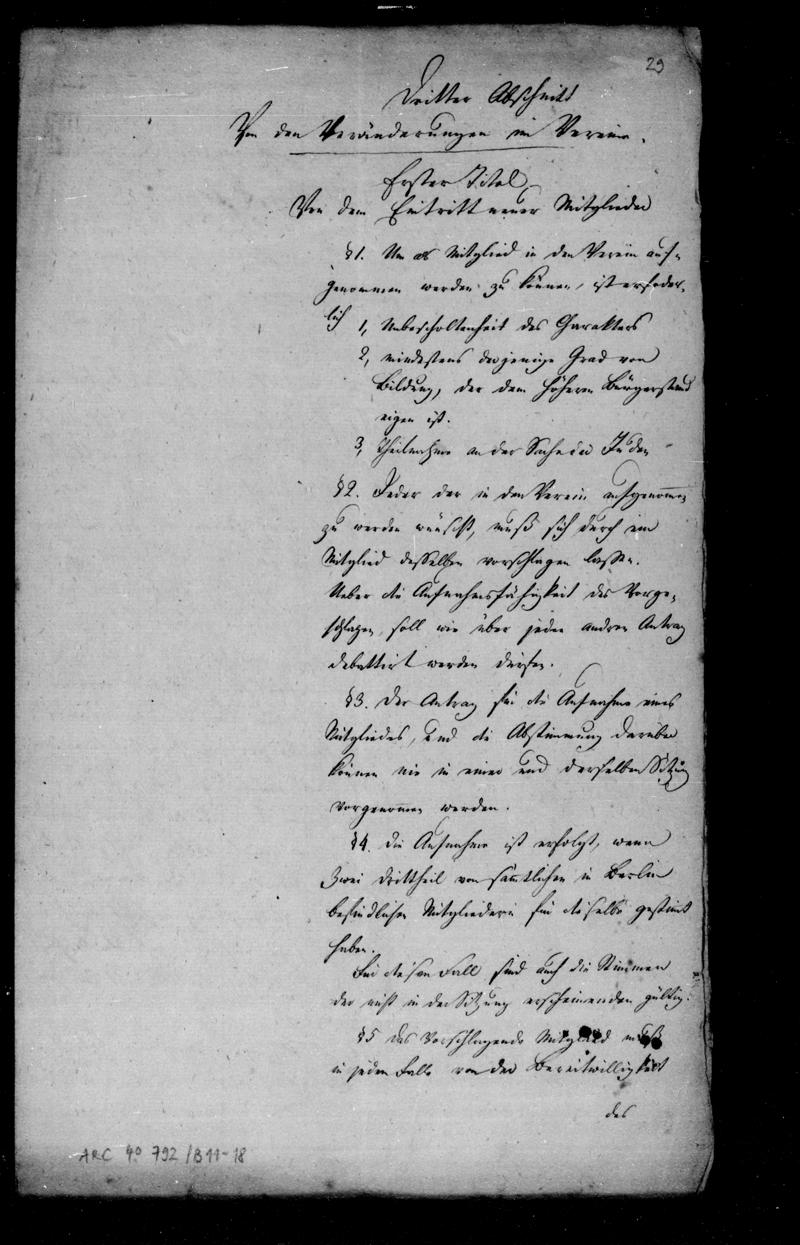 29
Dritter Abschnitt
Von den Veränderungen im Verein.
Erster Titel
Von dem Eintritt neuer Mitglieder
§1. Um als Mitglied in den Verein auf-
genommen werden zu können, ist erfoder-
lich 1, Unbescholtenheit des Charakters
2, mindestens derjenige Grad von
Bildung, der dem höheren Bürgerstand
eigen ist.
3, Theilnahme an der Sache der Juden
§2. Jeder der in den Verein aufgenommen
zu werden wünscht, muß sich durch ein
Mitglied desselben vorschlagen lassen.
Ueber die Aufnahmsfähigkeit des Vorge-
schlagen, soll wie über jeden andren Antrag
debattirt werden dürfen.
§3. Der Antrag für die Aufnahme eines
Mitgliedes, und die Abstimmung darüber
können nie in einer und derselben Sitzung
vorgenommen werden.
§4. Die Aufnahme ist erfolgt, wenn
zwei Drittheil von sämtlichen in Berlin
befindlichen Mitgliedern für dieselbe gestimt
haben.
Für diesen Fall sind auch die Stimmen
der nicht in der Sitzung erscheinenden gültig.
§5 Das Vorschlagende Mitglied muß
in jedem Falle von der Bereitwilligkeit
des
ARC 4° 792 /B11-18